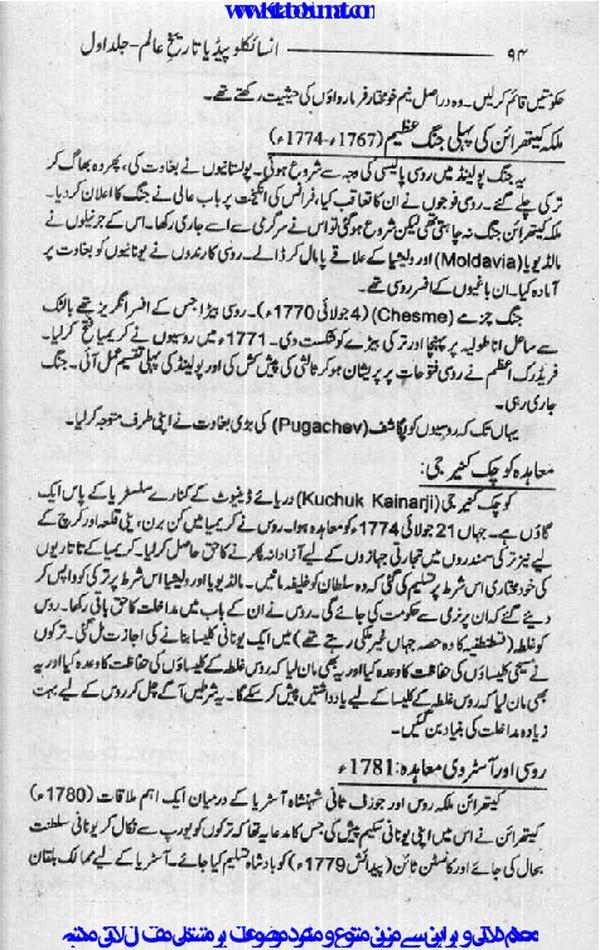 www.KitaboSunnat.com
۹۴ انسائیکلوپیڈیا تاریخِ عالم-جلد اول
حکومتیں قائم کرلیں۔ وہ دراصل نیم خودمختار فرمارواؤں کی حیثیت رکھتے تھے۔
ملکہ کیتھرائن کی پہلی جنگ عظیم (1767ء-1774ء)
یہ جنگ پولینڈ میں روسی پالیسی کی وجہ سے شروع ہوئی۔ پولستانیوں نے بغاوت کی، پھر وہ بھاگ کر
ترکی چلے گئے۔ روسی فوجوں نے ان کا تعاقب کیا، فرانس کی انگیخت پر باب عالی نے جنگ کا اعلان کردیا۔
ملکہ کیتھرائن جنگ نہ چاہتی تھی لیکن شروع ہوگئی تو اس نے سرگرمی سے اسے جاری رکھا۔ اس کے جرنیلوں نے
مالڈیویا (Moldavia) اور ولیشیا کے علاقے پامال کر ڈالے۔ روسی کارندوں نے یونانیوں کو بغاوت پر
آمادہ کیا۔ ان باغیوں کے افسر روسی تھے۔
جنگ چزمے (Chesme) (4 جولائی 1770ء)۔ روسی بیڑا جس کے افسر انگریز تھے بالٹک
سے ساحل اناطولیہ پر پہنچا اور ترکی بیڑے کو شکست دی۔ 1771ء میں روسیوں نے کریمیا فتح کرلیا۔
فریڈرک اعظم نے روسی فتوحات پر پریشان ہوکر ثالثی کی پیش کش کی اور پولینڈ کی پہلی تقسیم عمل آئی۔ جنگ
جاری رہی۔
یہاں تک کہ روسیوں کو پگاشف (Pugachev) کی بڑی بغاوت نے اپنی طرف متوجہ کرلیا۔
معاہدہ کوچک کنیرجی:
کوچک کنیرجی (Kuchuk Kainarji) دریائے ڈینیوب کے کنارے سلسٹریا کے پاس ایک
گاؤں ہے۔ جہاں 21 جولائی 1774ء کو معاہدہ ہوا۔ روس نے کریمیا میں کن برن، ینی قلعہ اور کرچ کے
لیے نیز ترکی سمندروں میں تجارتی جہازوں کے لیے آزادانہ پھرنے کا حق حاصل کرلیا۔ کریمیا کے تاتاریوں
کی خودمختاری اس شرط پر تسلیم کی گئی کہ وہ سلطان کو خلیفہ مانیں۔ مالڈیویا اور ولیشیا اس شرط پر ترکی کو واپس کر
دیئے گئے کہ ان پر نرمی سے حکومت کی جائے گی۔ روس نے ان کے باب میں مداخلت کا حق باقی رکھا۔ روس
کو غلطہ (قسطنطنیہ کا وہ حصہ جہاں غیر ملکی رہتے تھے) میں ایک یونانی کلیسا بنانے کی اجازت مل گئی۔ ترکوں
نے مسیحی کلیساؤں کی حفاظت کا وعدہ کیا اور یہ بھی مان لیا کہ روس غلطہ کے کلیساؤں کی حفاظت کا وعدہ کیا اور یہ
بھی مان لیا کہ روس غلطہ کے کلیسا کے لیے یادداشتیں پیش کرسکے گا۔ یہ شرطیں آگے چل کر روس کے لیے بہت
زیادہ مداخلت کی بنیاد بن گئیں۔
روسی اور آسٹروی معاہدہ: 1781ء
کیتھرائن ملکہ روس اور جوزف ثانی شہنشاہ آسٹریا کے درمیان ایک اہم ملاقات (1780ء)
کیتھرائن نے اس میں اپنی یونانی سکیم پیش کی جس کا مدعا یہ تھا کہ ترکوں کو یورپ سے نکال کر یونانی سلطنت
بحال کی جائے اور کانسٹن ٹائن (پیدائش 1779ء) کو بادشاہ تسلیم کیا جائے۔ آسٹریا کے لیے ممالک بلقان
محکم دلائل و براہین سے مزین متنوع و منفرد موضوعات پر مشتمل مفت آن لائن مکتبہ